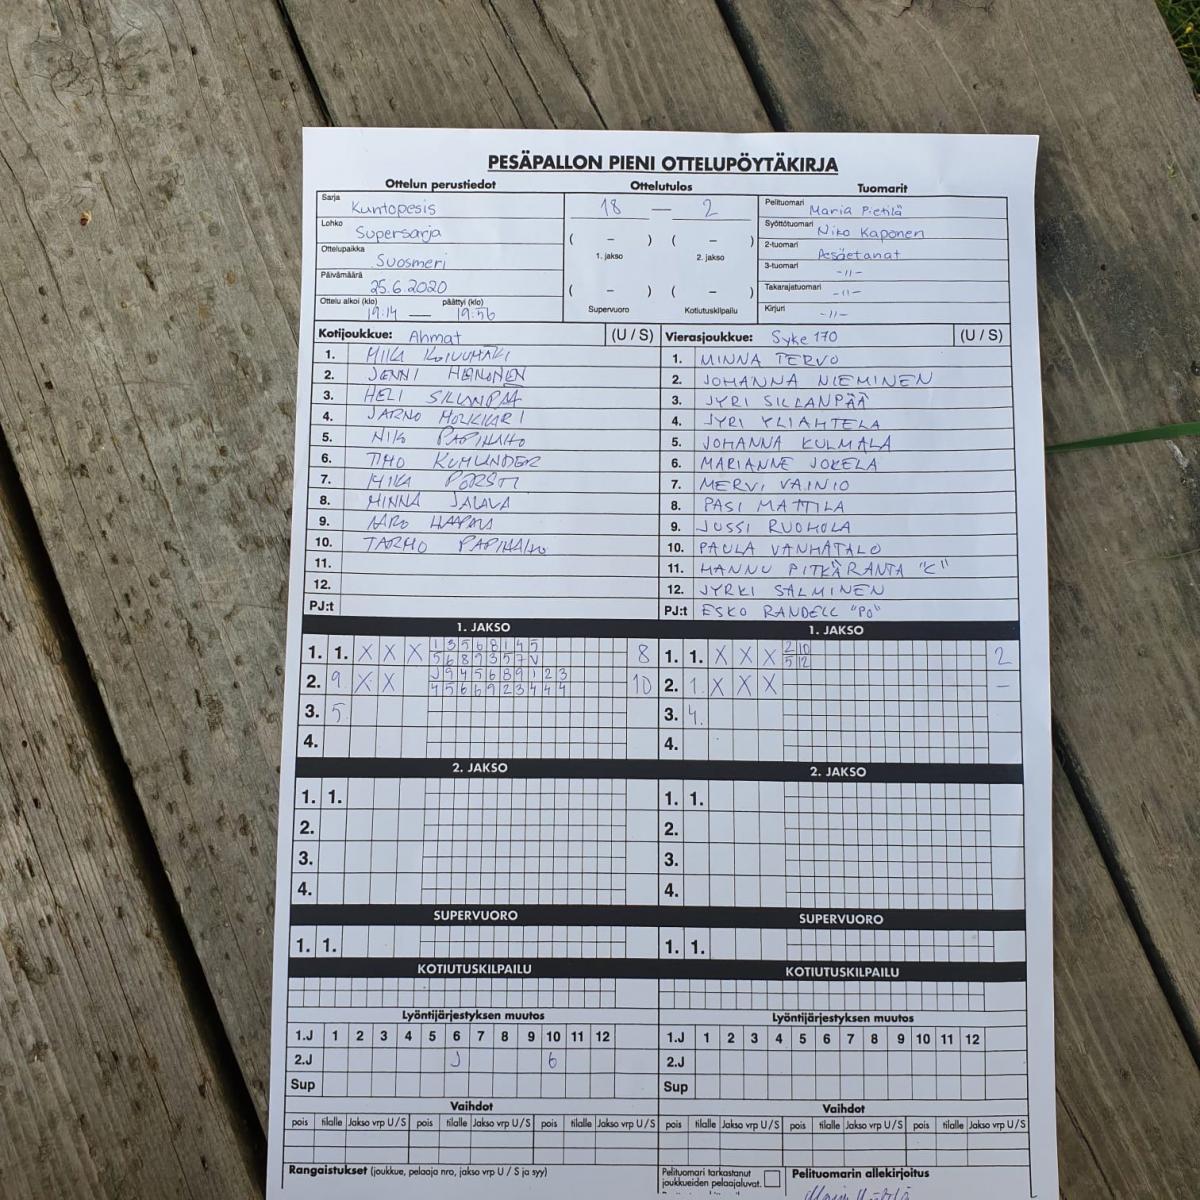 PESÄPALLON PIENI OTTELUPÖYTÄKIRJA
Ottelun perustiedot
Ottelutulos
Tuomarit
Sarja Kuntopesis
Lohko Supersarja
Ottelupaikka Suosmeri
Päivämäärä 25.6.2020
Ottelu alkoi (klo) päättyi (klo)
19:14 — 19:56
18 — 2
( – ) ( – )
1. jakso 2. jakso
( – ) ( – )
Supervuoro Kotiutuskilpailu
Pelituomari Maria Pietilä
Syöttötuomari Niko Kaponen
2-tuomari Pesäetanat
3-tuomari -11-
Takarajatuomari -11-
Kirjuri -11-
Kotijoukkue: Ahmat (U / S)
1. MIKA KOIVUMÄKI
2. JENNI HEINONEN
3. HELI SILLANPÄÄ
4. JARNO
5. NIKO PAPINAHO
6. TIMO
7. MIKA
8. MINNA JALAVA
9.
10. TARMO PAPINAHO
11.
12.
PJ:t
Vierasjoukkue: Syke 170 (U / S)
1. MINNA TERVO
2. JOHANNA NIEMINEN
3. JYRI SILLANPÄÄ
4. JYRI YLIAHTELA
5. JOHANNA KULMALA
6. MARIANNE JOKELA
7. MERVI VAINIO
8. PASI MATTILA
9. JUSSI RUOHOLA
10. PAULA VANHATALO
11. HANNU PITKÄRANTA "C"
12. JYRKI SALMINEN
PJ:t ESKO RANDELL "PO"
1. JAKSO
1. 1. X X X 1 3 5 6 8 1 4 5 8
5 6 8 9 3 5 7 V
2. 9 X X J 9 4 5 6 8 9 1 2 3 10
4 5 6 6 9 2 3 4 4 4
3. 5.
4.
1. JAKSO
1. 1. X X X 2 10 2
5 12
2. 1. X X X –
3. 4.
4.
2. JAKSO
1. 1.
2.
3.
4.
2. JAKSO
1. 1.
2.
3.
4.
SUPERVUORO
1. 1.
SUPERVUORO
1. 1.
KOTIUTUSKILPAILU
KOTIUTUSKILPAILU
Lyöntijärjestyksen muutos
1.J 1 2 3 4 5 6 7 8 9 10 11 12
2.J J 6
Sup
Lyöntijärjestyksen muutos
1.J 1 2 3 4 5 6 7 8 9 10 11 12
2.J
Sup
Vaihdot
pois tilalle Jakso vrp U / S pois tilalle Jakso vrp U / S pois tilalle Jakso vrp U / S
Vaihdot
pois tilalle Jakso vrp U / S pois tilalle Jakso vrp U / S pois tilalle Jakso vrp U / S
Rangaistukset (joukkue, pelaaja nro, jakso vrp U / S ja syy)
Pelituomari tarkastanut
joukkueiden pelaajaluvat.
Pelituomarin allekirjoitus